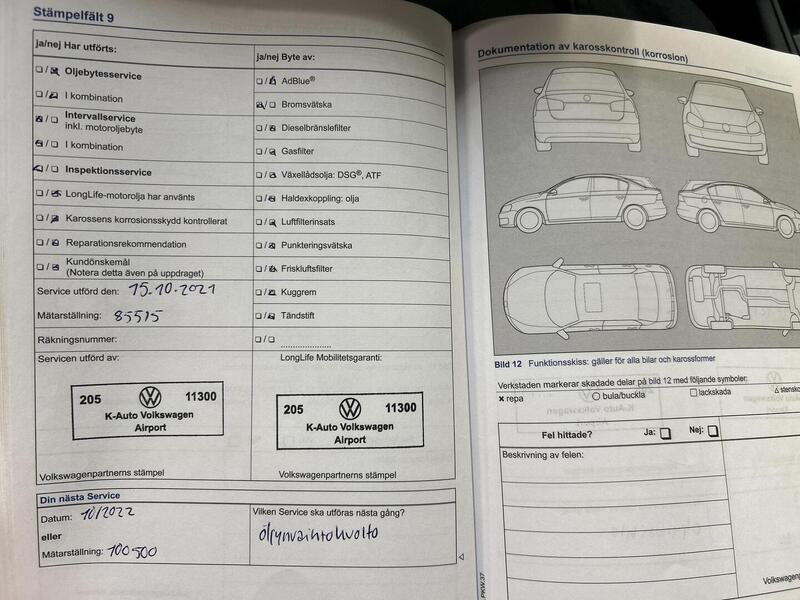 Stämpelfält 9
ja/nej Har utförts:
Oljebytesservice
I kombination
Intervallservice
inkl. motoroljebyte
I kombination
Inspektionsservice
LongLife-motorolja har använts
Karossens korrosionsskydd kontrollerat
Reparationsrekommendation
Kundönskemål
(Notera detta även på uppdraget)
Service utförd den: 15.10.2021
Mätarställning: 85515
Räkningsnummer:
ja/nej Byte av:
AdBlue®
Bromsvätska
Dieselbränslefilter
Gasfilter
Växellådsolja: DSG®, ATF
Haldexkoppling: olja
Luftfilterinsats
Punkteringsvätska
Friskluftsfilter
Kuggrem
Tändstift
Servicen utförd av:
205 11300
K-Auto Volkswagen
Airport
Volkswagenpartnerns stämpel
LongLife Mobilitetsgaranti:
205 11300
K-Auto Volkswagen
Airport
Volkswagenpartnerns stämpel
Din nästa Service
Datum: 10/2022
eller
Mätarställning: 100500
Vilken Service ska utföras nästa gång?
Öljynvaihtohuolto
Dokumentation av karosskontroll (korrosion)
Bild 12 Funktionsskiss: gäller för alla bilar och karossformer
Verkstaden markerar skadade delar på bild 12 med följande symboler:
x repa
bula/buckla
lackskada
Fel hittade? Ja: Nej:
Beskrivning av felen: